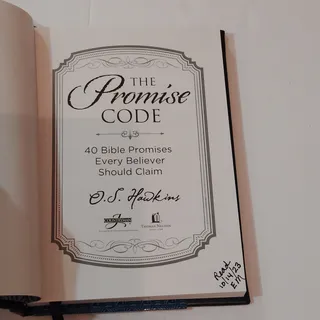 THE
Promise
CODE
40 Bible Promises
Every Believer
Should Claim
O.S. Hawkins
THOMAS NELSON
Read
10/14/23
EM